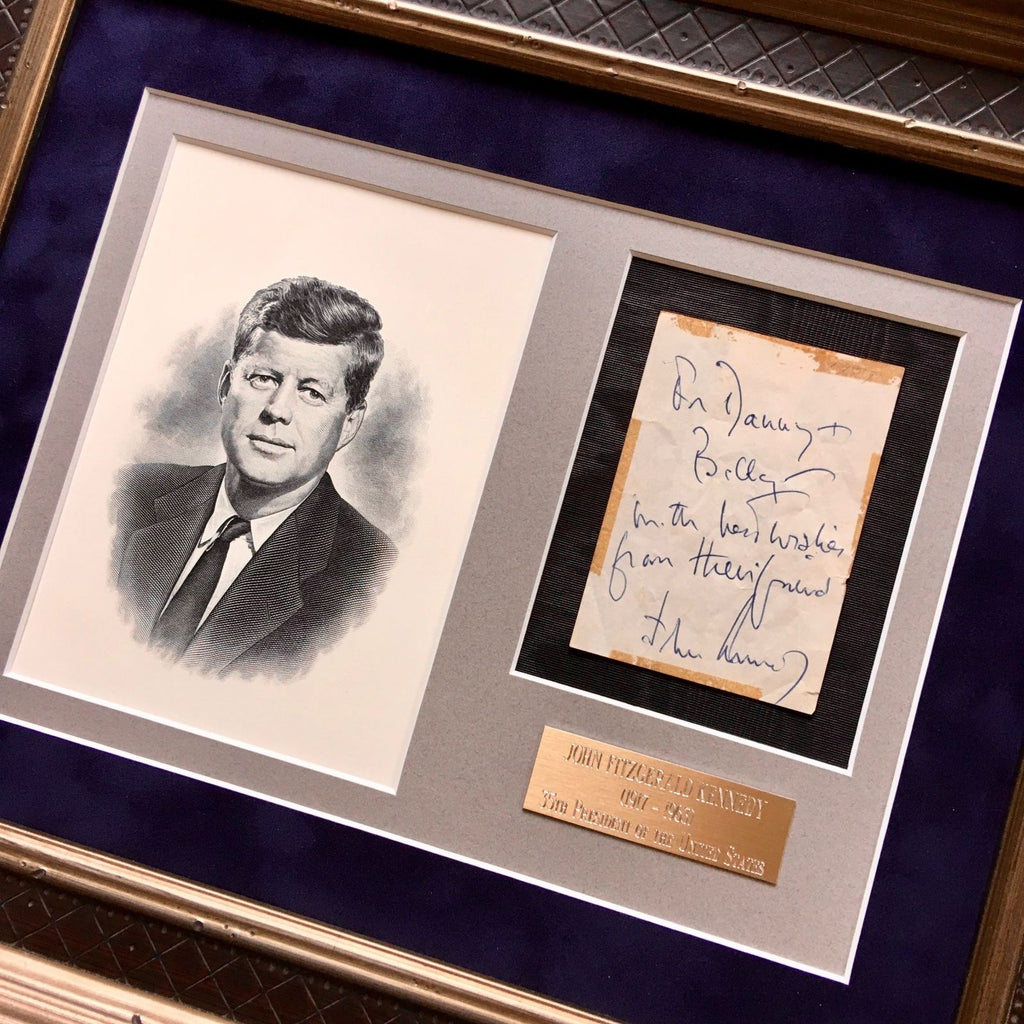 To Danny +
Billy
with best wishes
from their friend
John Kennedy
JOHN FITZGERALD KENNEDY
(1917 - 1963)
35TH PRESIDENT OF THE UNITED STATES